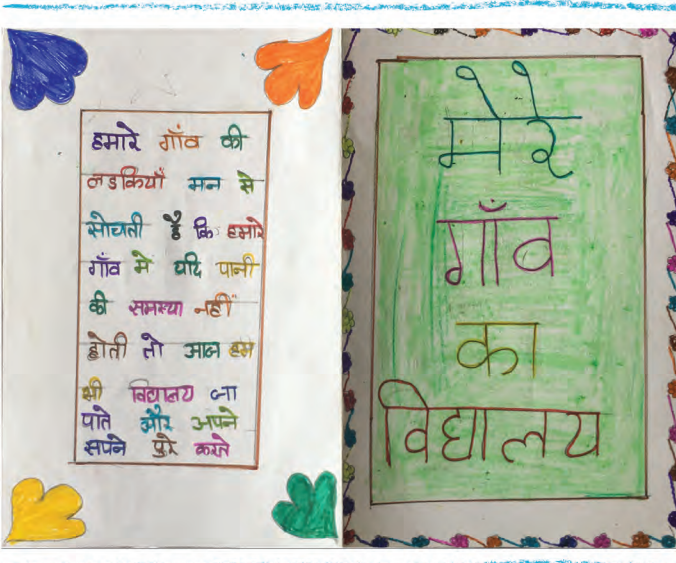 हमारे गाँव की
लडकियाँ मन मे
सोचती है कि हमारे
गाँव मे यदि पानी
की समस्या नहीं
होती तो आज हम
भी विद्यालय जा
पाते और अपने
सपने पुरे करते
मेरे
गाँव
का
विद्यालय